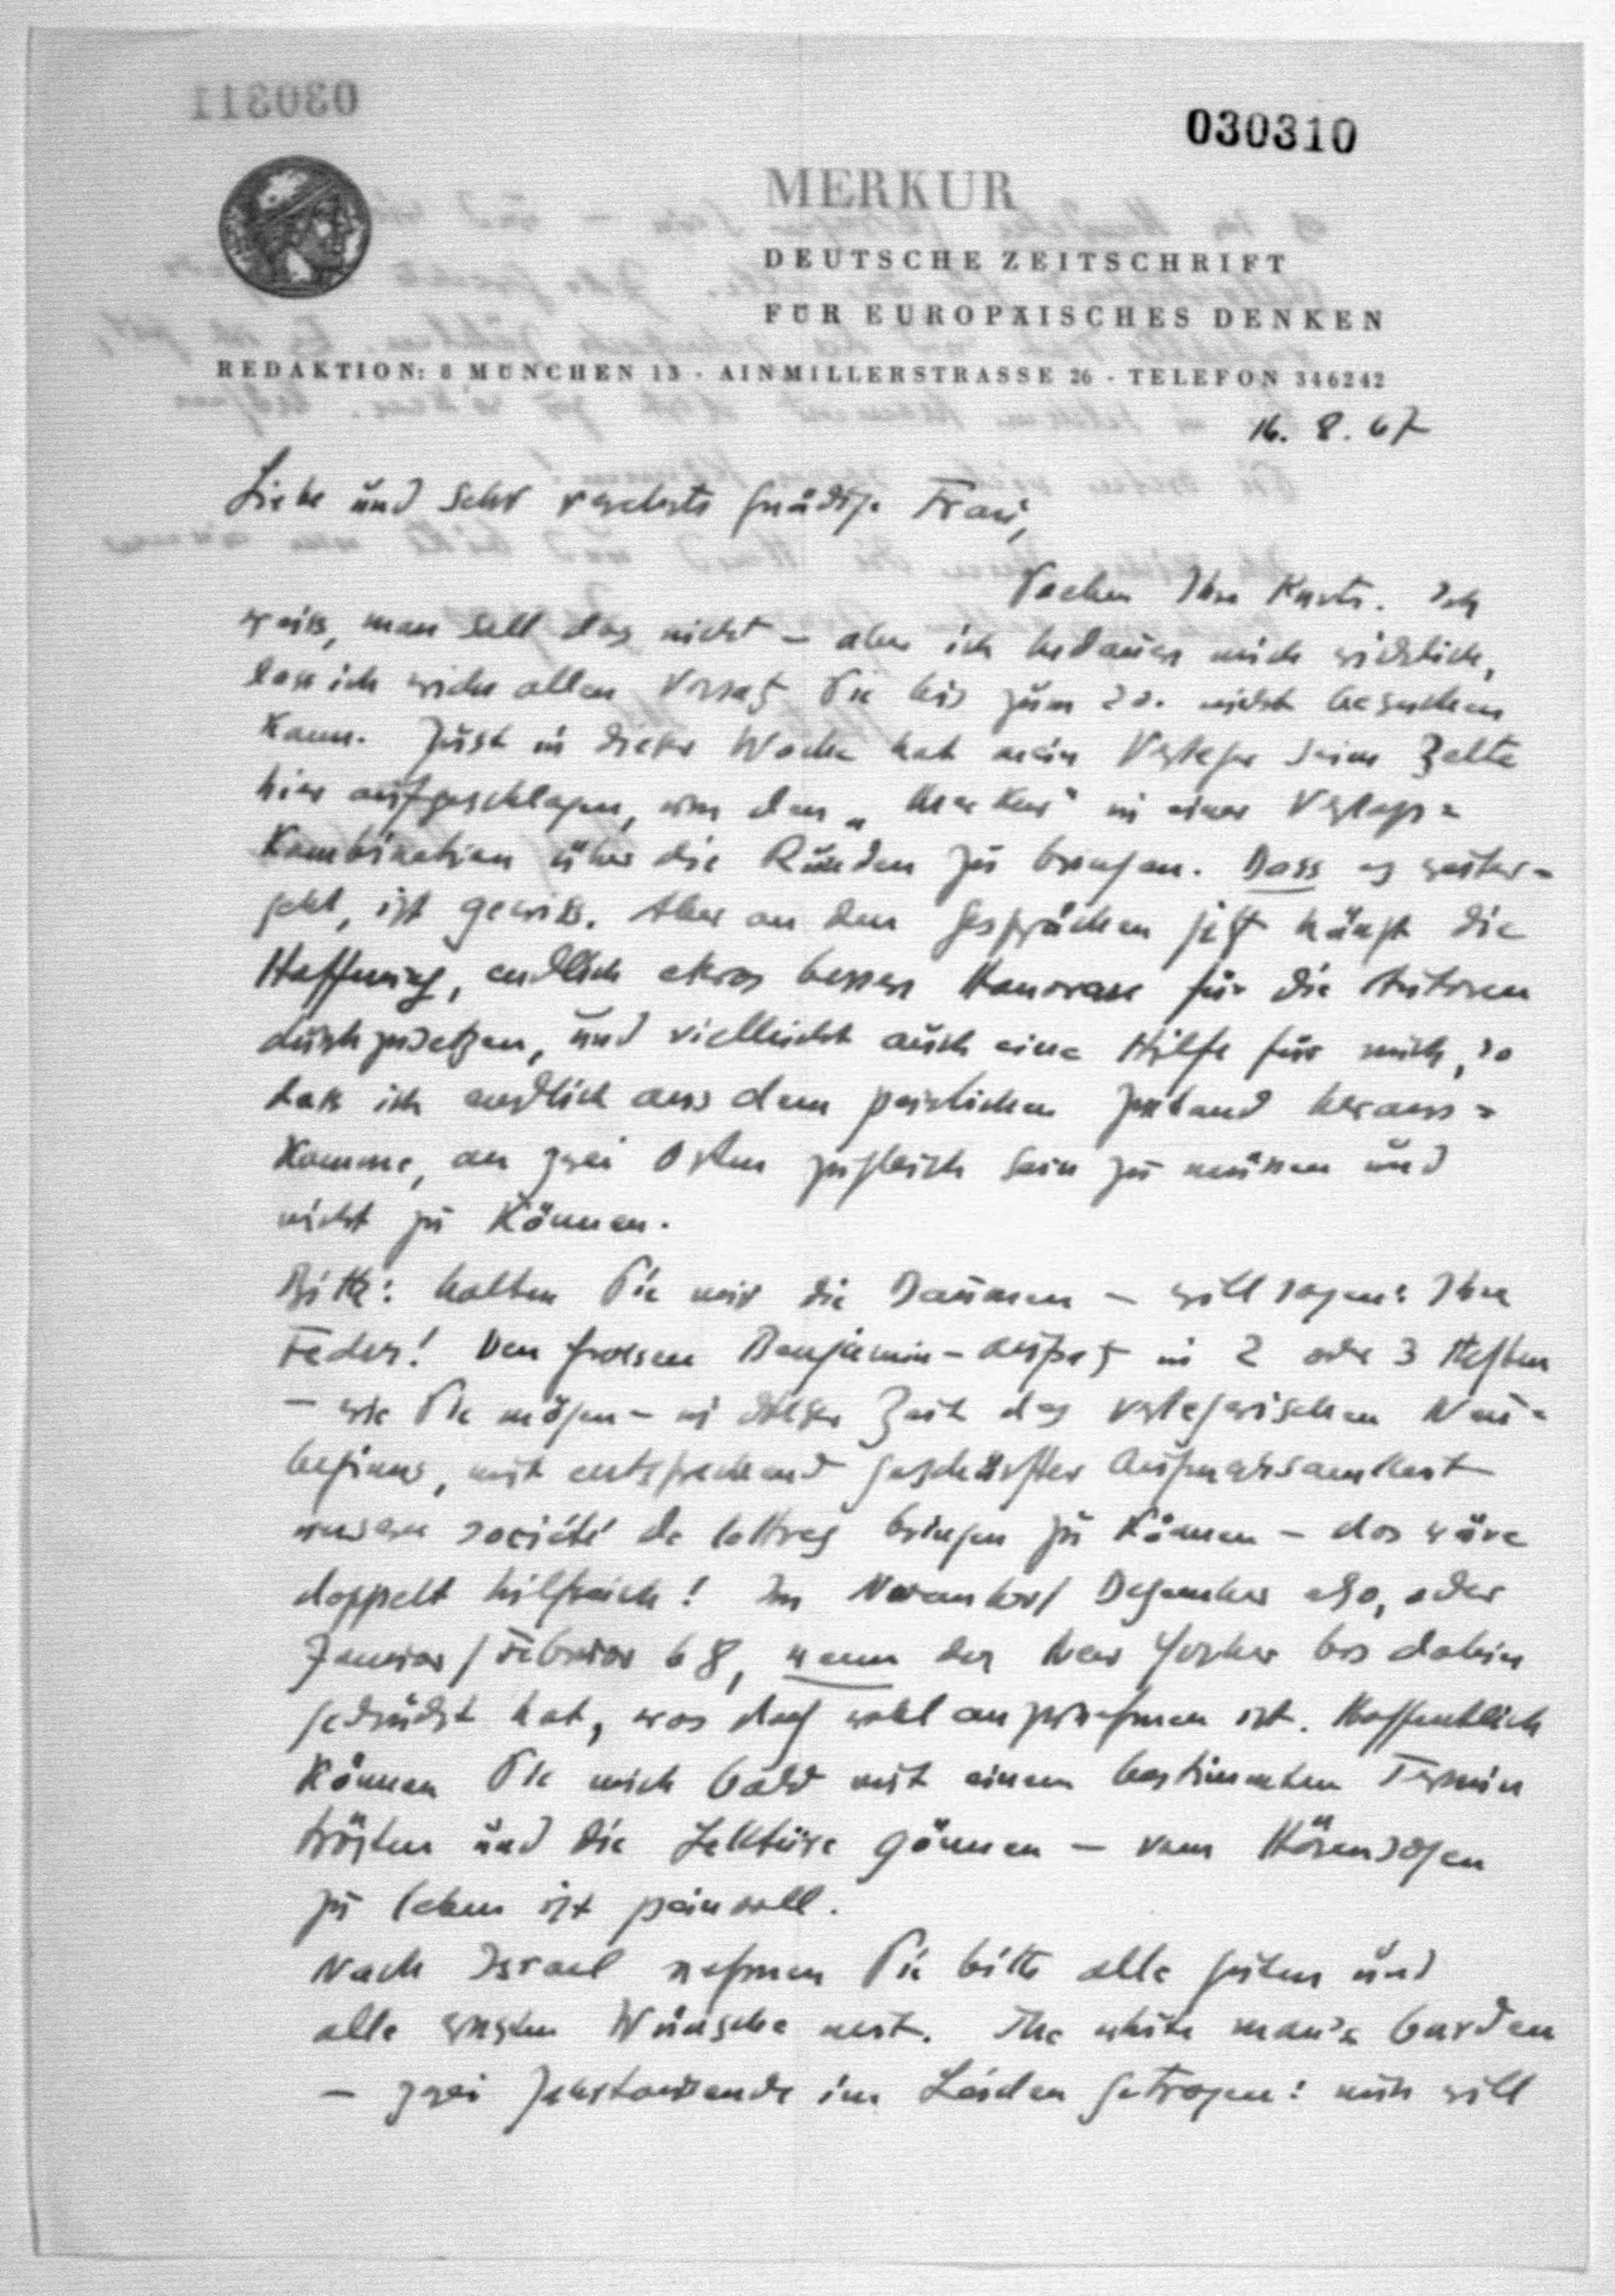 030310
MERKUR
DEUTSCHE ZEITSCHRIFT
FÜR EUROPÄISCHES DENKEN
REDAKTION: 8 MÜNCHEN 13 · AINMILLERSTRASSE 26 · TELEFON 346242
16. 8. 67
Liebe und sehr verehrte gnädige Frau,
soeben Ihre Karte. Ich
weiss, man soll das nicht – aber ich bedauere mich wirklich,
dass ich wider allen Vorsatz Sie bis zum 20. nicht besuchen
kann. Just in dieser Woche hat mein Verleger seine Zelte
hier aufgeschlagen, um den „Merkur" in einer Verlags=
Kombination über die Runden zu bringen. Dass es weiter=
geht, ist gewiss. Aber an den Gesprächen jetzt hängt die
Hoffnung, endlich etwas bessere Honorare für die Autoren
durchzusetzen, und vielleicht auch eine Hilfe für mich, so
dass ich endlich aus dem peinlichen Zustand heraus=
komme, an zwei Orten zugleich sein zu müssen und
nicht zu können.
Bitte: halten Sie mir die Daumen – will sagen: Ihre
Feder! Den grossen Benjamin-Aufsatz in 2 oder 3 Heften
– wie Sie mögen – in dieser Zeit des verlegerischen Neu=
beginns, mit entsprechend geschärfter Aufmerksamkeit
unserer société de lettres bringen zu können – das wäre
doppelt hilfreich! Im November/Dezember also, oder
Januar/Februar 68, wenn der New Yorker bis dahin
gedruckt hat, was doch wohl anzunehmen ist. Hoffentlich
können Sie mich bald mit einem bestimmten Termin
trösten und die Lektüre gönnen – vom Hörensagen
zu leben ist peinvoll.
Nach Israel nehmen Sie bitte alle guten und
alle ersten Wünsche mit. The white man's burden
– zwei Jahrtausende im Leiden getragen: nun will